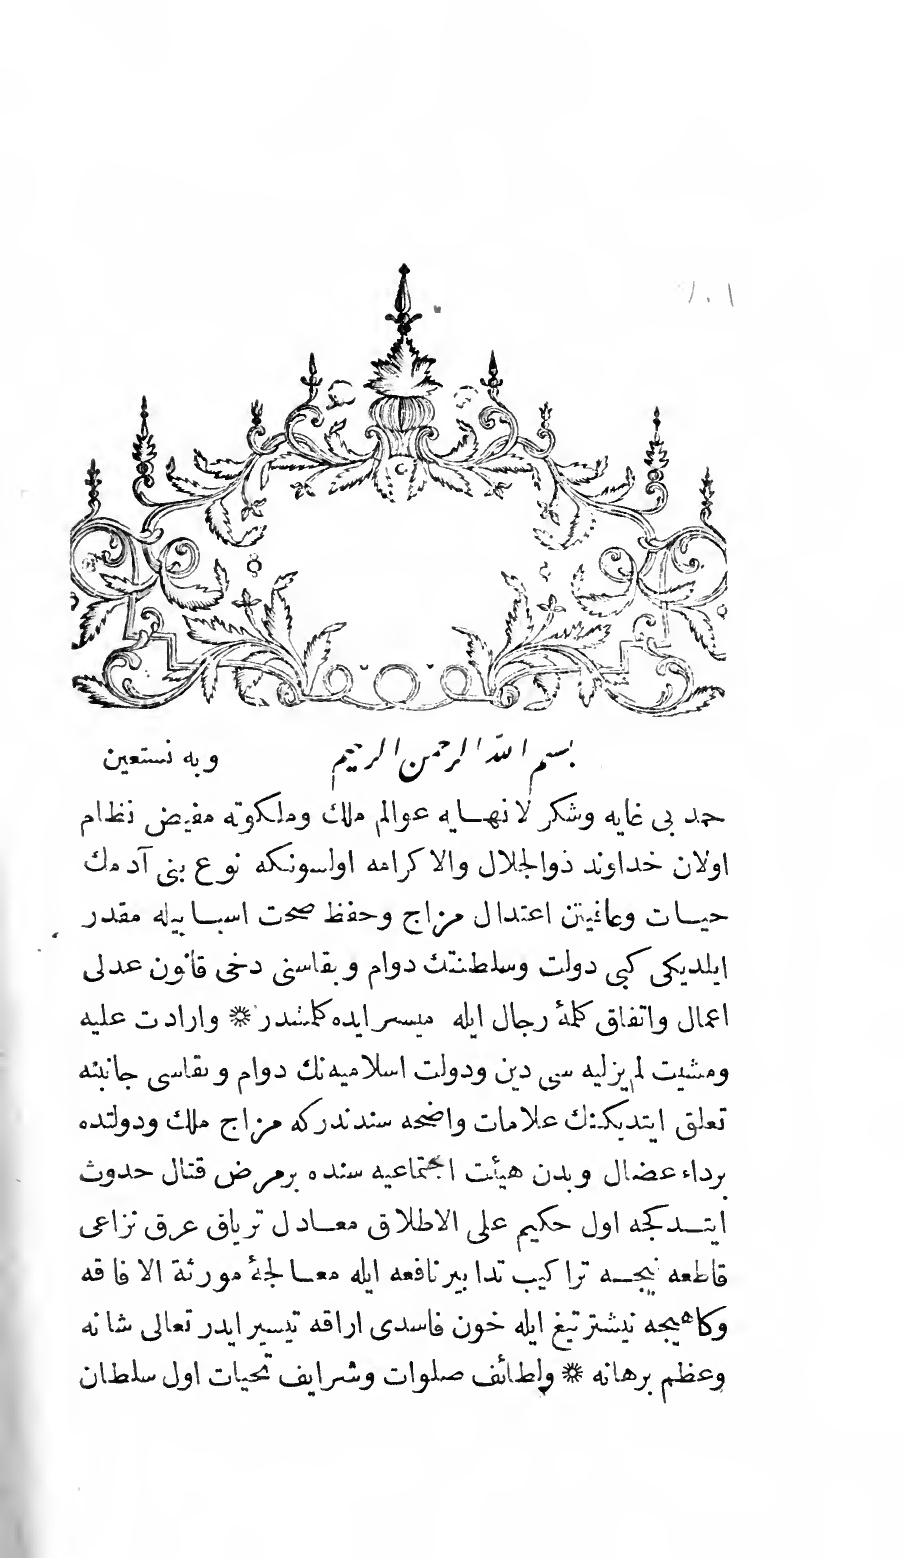 بسم الله الرحمن الرحيم وبه نستعين
حمد بی غایه وشکر لا نهایه عوالم ملك وملکوته مفیض نظام
اولان خداوند ذوالجلال والاکرامه اولسونکه نوع بنی آدمك
حیات وعافیتن اعتدال مزاج وحفظ صحت اسبابیله مقدر
ایلدیکی کبی دولت وسلطنتك دوام وبقاسنی دخی قانون عدلی
اعمال واتفاق کلمهٔ رجال ایله میسر ایده کلمشدر ❋ وارادت علیه
ومشیت لم یزلیه سی دین ودولت اسلامیه نك دوام وبقاسی جانبنه
تعلق ایتدیکنك علامات واضحه سندندرکه مزاج ملك ودولتده
برداء عضال وبدن هیئت اجتماعیه سنده برمرض قتال حدوث
ایتدکجه اول حکیم علی الاطلاق معادل تریاق عرق نزاعی
قاطعه نیجه تراکیب تدابیر نافعه ایله معالجهٔ مورثة الافاقه
وکاهیجه نیشتر تیغ ایله خون فاسدی اراقه تیسیر ایدر تعالی شانه
وعظم برهانه ❋ ولطائف صلوات وشرایف تحیات اول سلطان